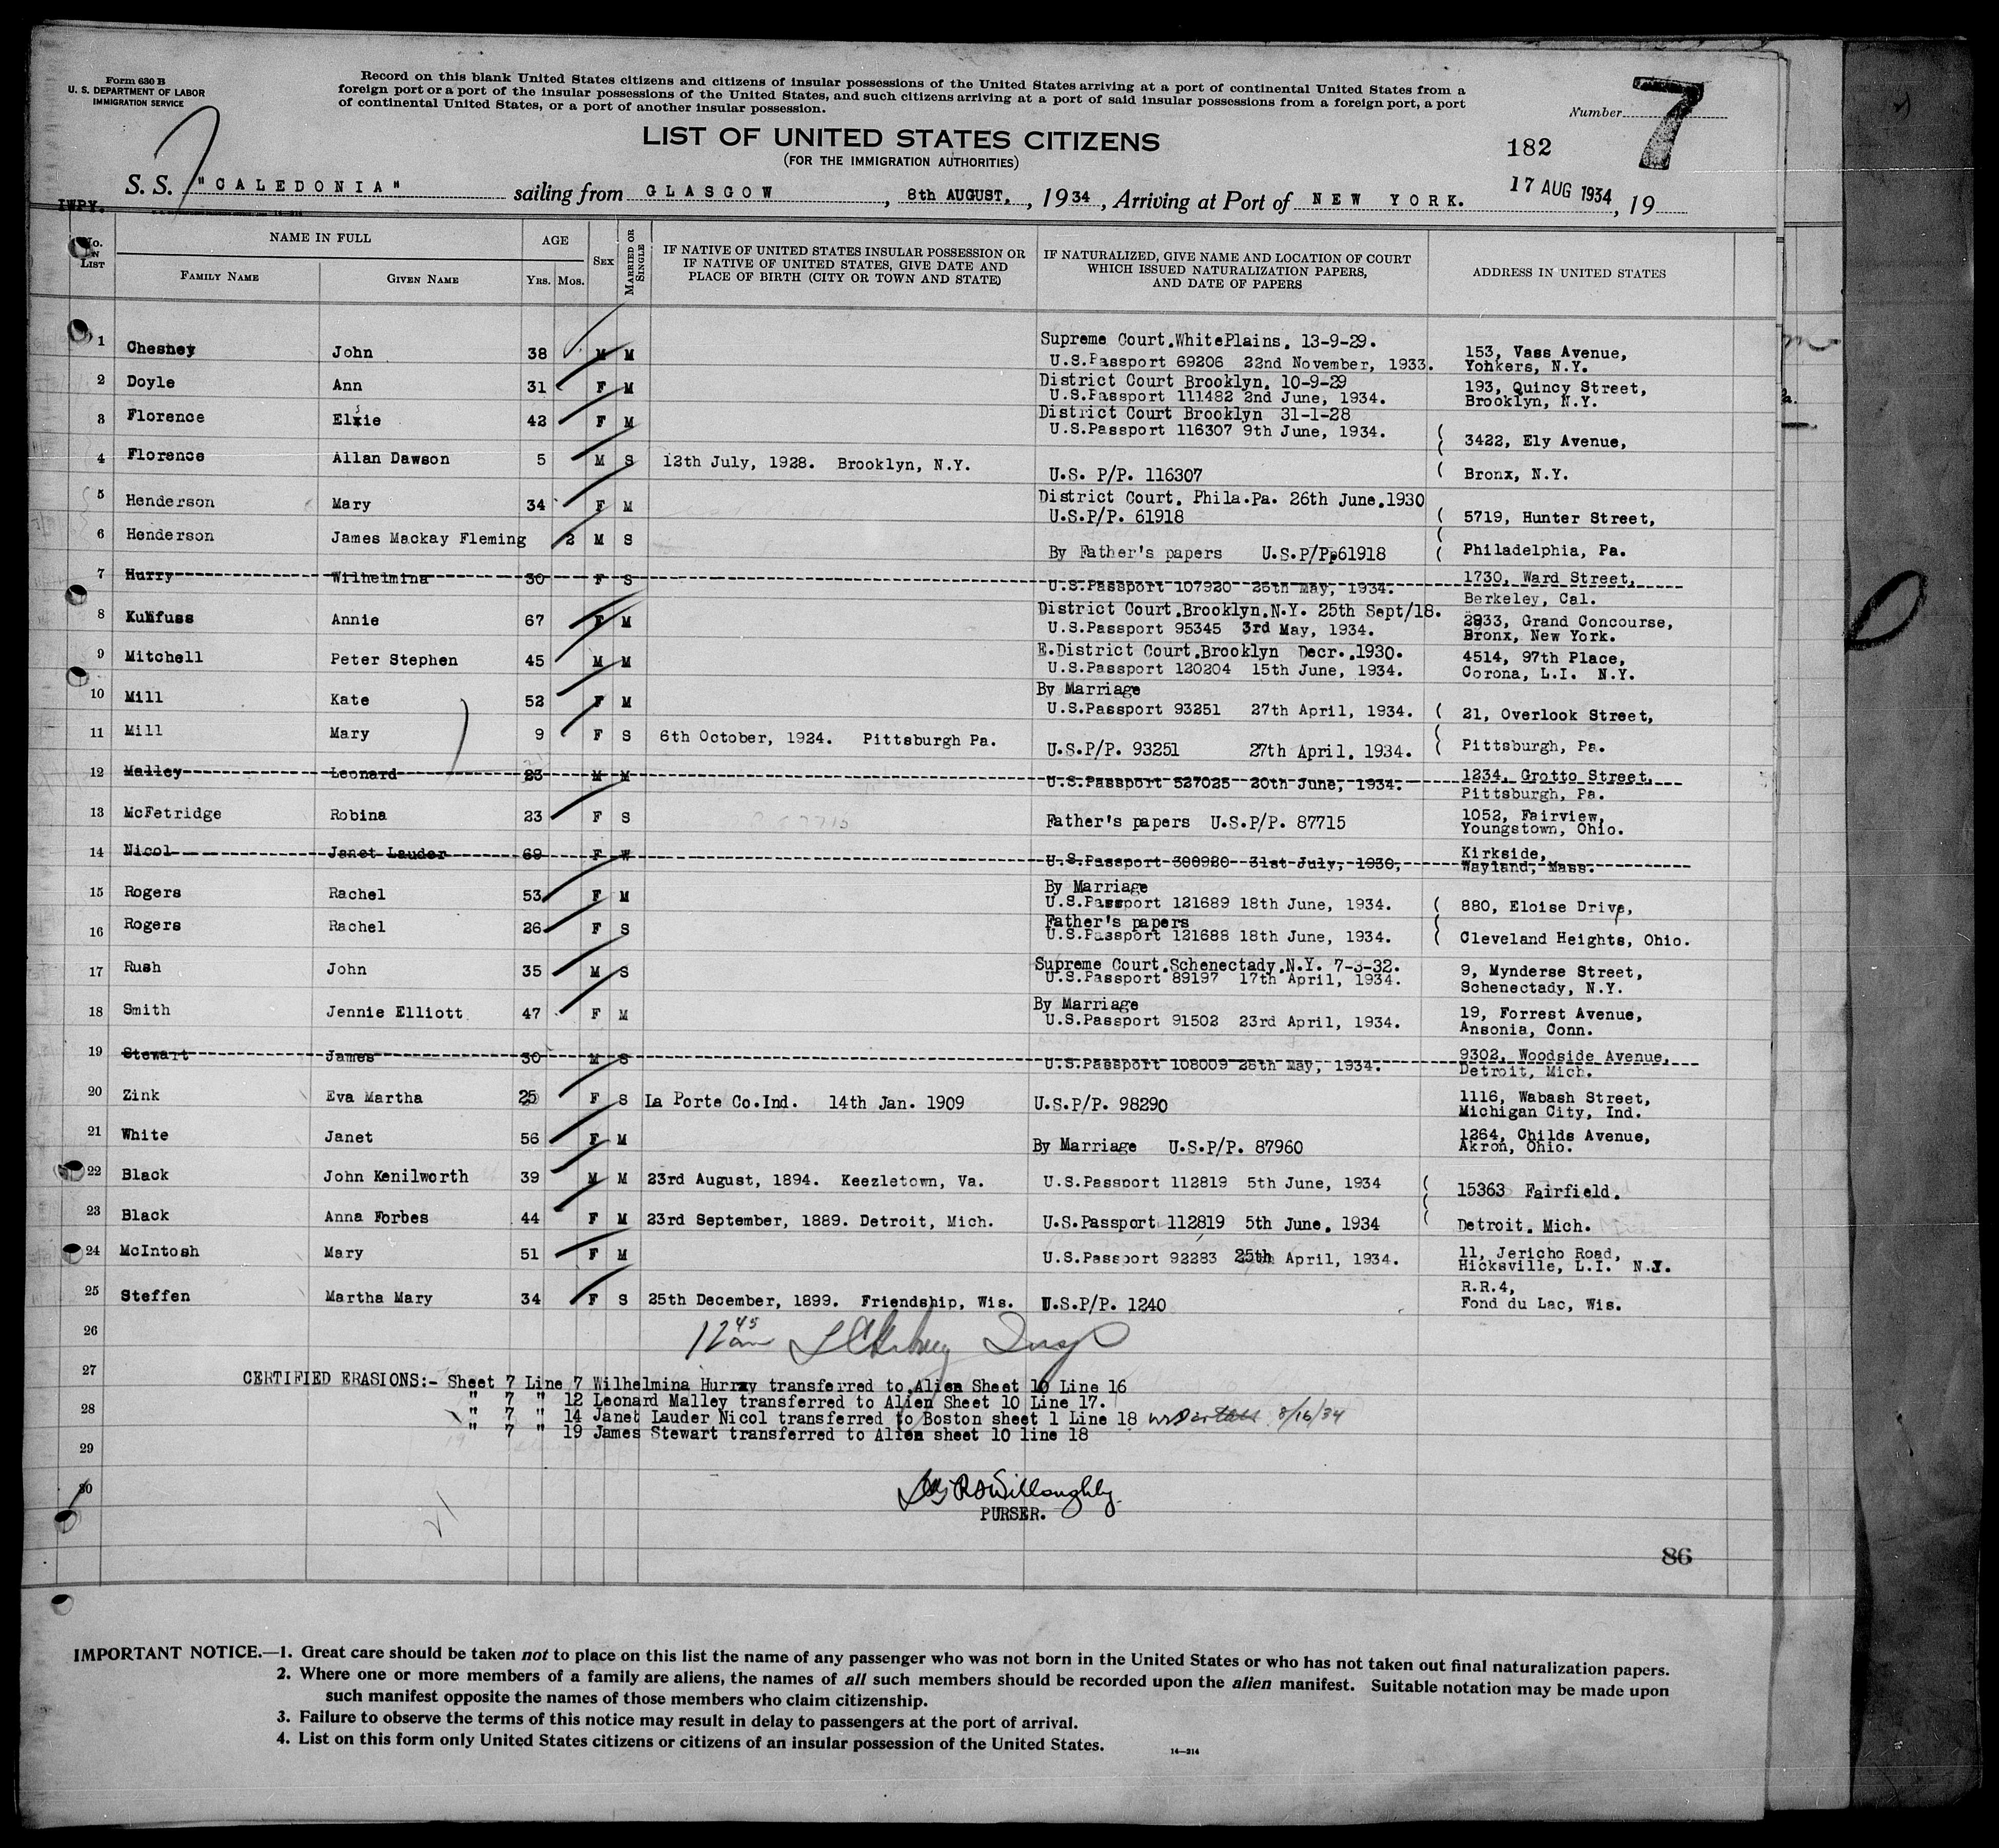 Form 630 B
U. S. DEPARTMENT OF LABOR
IMMIGRATION SERVICE
Record on this blank United States citizens and citizens of insular possessions of the United States arriving at a port of continental United States from a
foreign port or a port of the insular possessions of the United States, and such citizens arriving at a port of said insular possessions from a foreign port, a port
of continental United States, or a port of another insular possession.
Number 7
LIST OF UNITED STATES CITIZENS
(FOR THE IMMIGRATION AUTHORITIES)
182
7
S. S. "CALEDONIA" sailing from GLASGOW, 8th AUGUST, 1934, Arriving at Port of NEW YORK. 17 AUG 1934, 19
No. in List
NAME IN FULL
FAMILY NAME
GIVEN NAME
AGE
YRS. MOS.
SEX
MARRIED OR SINGLE
IF NATIVE OF UNITED STATES INSULAR POSSESSION OR
IF NATIVE OF UNITED STATES, GIVE DATE AND
PLACE OF BIRTH (CITY OR TOWN AND STATE)
IF NATURALIZED, GIVE NAME AND LOCATION OF COURT
WHICH ISSUED NATURALIZATION PAPERS,
AND DATE OF PAPERS
ADDRESS IN UNITED STATES
1 Chesney John 38 M M Supreme Court.WhitePlains. 13-9-29. U.S.Passport 69206 22nd November, 1933. 153, Vass Avenue, Yonkers, N.Y.
2 Doyle Ann 31 F M District Court Brooklyn. 10-9-29 U.S.Passport 111482 2nd June, 1934. 193, Quincy Street, Brooklyn, N.Y.
3 Florence Elsie 42 F M District Court Brooklyn 31-1-28 U.S.Passport 116307 9th June, 1934. 3422, Ely Avenue,
4 Florence Allan Dawson 5 M S 12th July, 1928. Brooklyn, N.Y. U.S. P/P. 116307 Bronx, N.Y.
5 Henderson Mary 34 F M District Court. Phila.Pa. 26th June.1930 U.S.P/P. 61918 5719, Hunter Street,
6 Henderson James Mackay Fleming 2 M S By Father's papers U.S.P/Pp61918 Philadelphia, Pa.
7 Hurry Wilhelmina 30 F S U.S.Passport 107920 25th May, 1934. 1730, Ward Street, Berkeley, Cal.
8 Kuhfuss Annie 67 F M District Court.Brooklyn.N.Y. 25th Sept/18. U.S.Passport 95345 3rd May, 1934. 2933, Grand Concourse, Bronx, New York.
9 Mitchell Peter Stephen 45 M M E.District Court.Brooklyn Decr..1930. U.S.Passport 120204 15th June, 1934. 4514, 97th Place, Corona, L.I. N.Y.
10 Mill Kate 52 F M By Marriage U.S.Passport 93251 27th April, 1934. 21, Overlook Street,
11 Mill Mary 9 F S 6th October, 1924. Pittsburgh Pa. U.S.P/P. 93251 27th April, 1934. Pittsburgh, Pa.
12 Malley Leonard 23 M M U.S.Passport 527025 20th June, 1934. 1234, Grotto Street, Pittsburgh, Pa.
13 McFetridge Robina 23 F S Father's papers U.S.P/P. 87715 1052, Fairview, Youngstown, Ohio.
14 Nicol Janet Lauder 69 F W U.S.Passport 300920 31st July, 1930, Kirkside, Wayland, Mass.
15 Rogers Rachel 53 F M By Marriage U.S.Passport 121689 18th June, 1934. 880, Eloise Drive,
16 Rogers Rachel 26 F S Father's papers U.S.Passport 121688 18th June, 1934. Cleveland Heights, Ohio.
17 Rush John 35 M S Supreme Court.Schenectady.N.Y. 7-3-32. U.S.Passport 89197 17th April, 1934. 9, Mynderse Street, Schenectady, N.Y.
18 Smith Jennie Elliott 47 F M By Marriage U.S.Passport 91502 23rd April, 1934. 19, Forrest Avenue, Ansonia, Conn.
19 Stewart James 30 M S U.S.Passport 108009 25th May, 1934. 9302, Woodside Avenue, Detroit, Mich.
20 Zink Eva Martha 25 F S La Porte Co.Ind. 14th Jan. 1909 U.S.P/P. 98290 1116, Wabash Street, Michigan City, Ind.
21 White Janet 56 F M By Marriage U.S.P/P. 87960 1264, Childs Avenue, Akron, Ohio.
22 Black John Kenilworth 39 M M 23rd August, 1894. Keezletown, Va. U.S.Passport 112819 5th June, 1934 15363 Fairfield.
23 Black Anna Forbes 44 F M 23rd September, 1889. Detroit, Mich. U.S.Passport 112819 5th June. 1934 Detroit. Mich.
24 McIntosh Mary 51 F M U.S.Passport 92283 25th April, 1934. 11, Jericho Road, Hicksville, L.I. N.Y.
25 Steffen Martha Mary 34 F S 25th December, 1899. Friendship, Wis. U.S.P/P. 1240 R.R.4, Fond du Lac, Wis.
26 12 45 am Insp
27
CERTIFIED ERASIONS:- Sheet 7 Line 7 Wilhelmina Hurray transferred to Alien Sheet 10 Line 16
" 7 " 12 Leonard Malley transferred to Alien Sheet 10 Line 17.
28
" 7 " 14 Janet Lauder Nicol transferred to Boston sheet 1 Line 18 8/16/34
" 7 " 19 James Stewart transferred to Alien sheet 10 line 18
29
30
Willoughby.
PURSER.
86
IMPORTANT NOTICE.—1. Great care should be taken not to place on this list the name of any passenger who was not born in the United States or who has not taken out final naturalization papers.
2. Where one or more members of a family are aliens, the names of all such members should be recorded upon the alien manifest. Suitable notation may be made upon
such manifest opposite the names of those members who claim citizenship.
3. Failure to observe the terms of this notice may result in delay to passengers at the port of arrival.
4. List on this form only United States citizens or citizens of an insular possession of the United States.
14—214